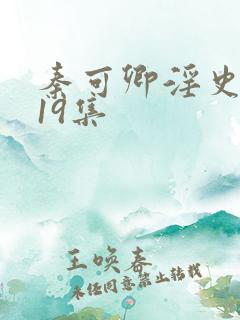 秦可卿淫史
19集
王唤春
未经同意禁止转载